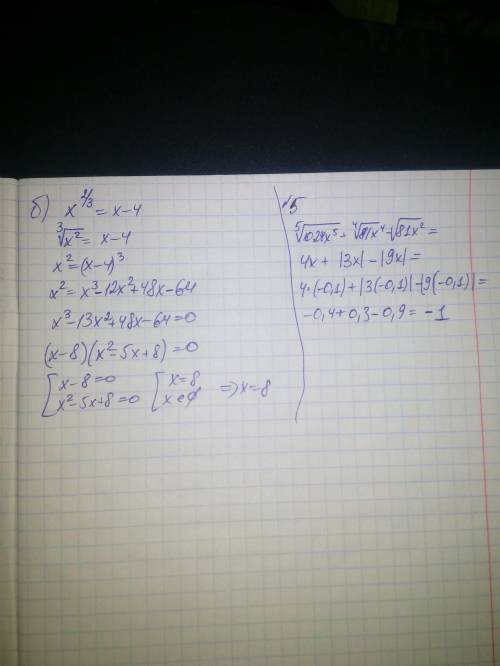 б) x^{2/3} = x-4
∛x² = x-4
x² = (x-4)³
x² = x³-12x²+48x-64
x³-13x²+48x-64=0
(x-8)(x²-5x+8)=0
[x-8=0 [x=8
[x²-5x+8=0 [x∈∅ => x=8
№5
⁵√1024x⁵ + ⁴√81x⁴ - √81x² =
4x + |3x| - |9x| =
4·(-0,1) + |3(-0,1)| - |9(-0,1)| =
-0,4+0,3-0,9 = -1